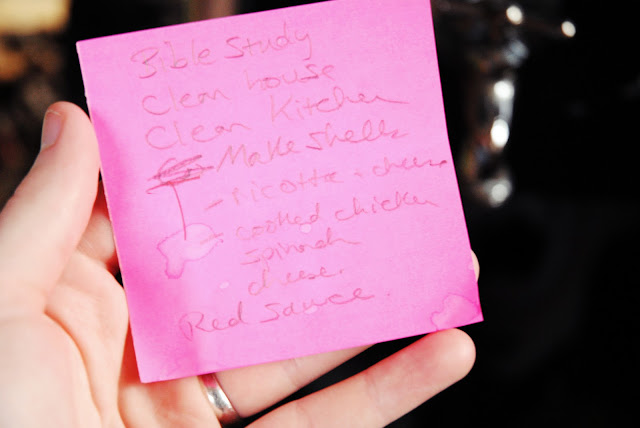 Bible Study
Clean house
Clean Kitchen
- Make Shells
- ricotta + cheese
- cooked chicken
spinach
cheese
Red Sauce